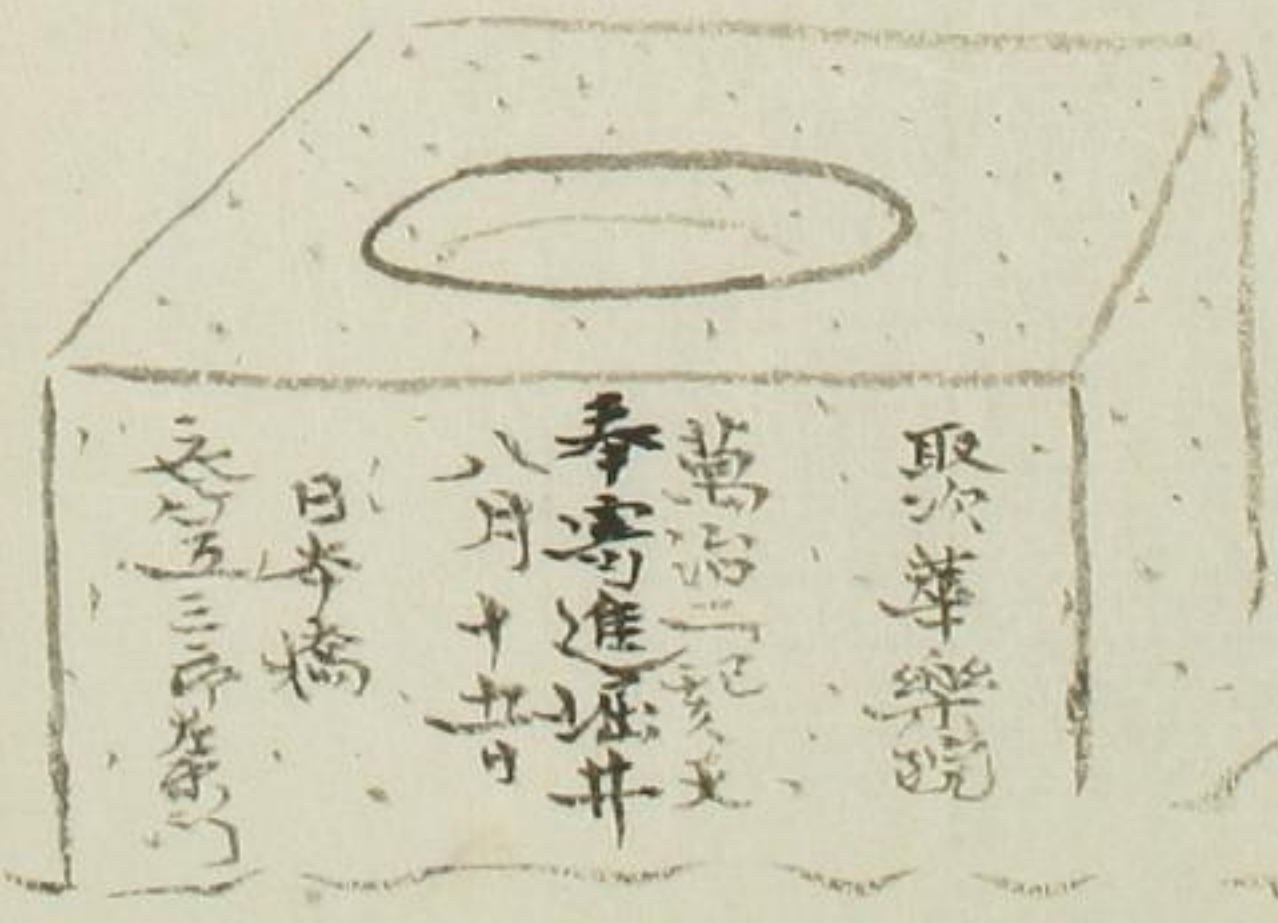 取次華樂院
萬治二己亥天
奉寄進堀井
八月十九日
日本橋
衣笠三郎左衛門